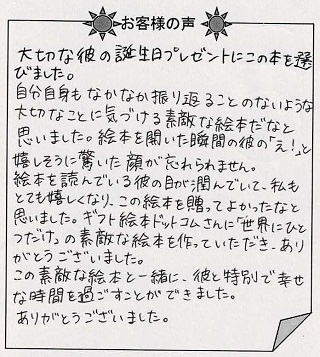 お客様の声
大切な彼の誕生日プレゼントにこの本を選
びました。
自分自身もなかなか振り返ることのないような
大切なことに気づける素敵な絵本だなと
思いました。絵本を開いた瞬間の彼の「え!」と
嬉しそうに驚いた顔が忘れられません。
絵本を読んでいる彼の目が潤んでいて、私も
とても嬉しくなり、この絵本を贈ってよかったなと
思いました。ギフト絵本ドットコムさんに「世界にひと
つだけ」の素敵な絵本を作っていただき、あり
がとうございました。
この素敵な絵本と一緒に、彼と特別で幸せ
な時間を過ごすことができました。
ありがとうございました。